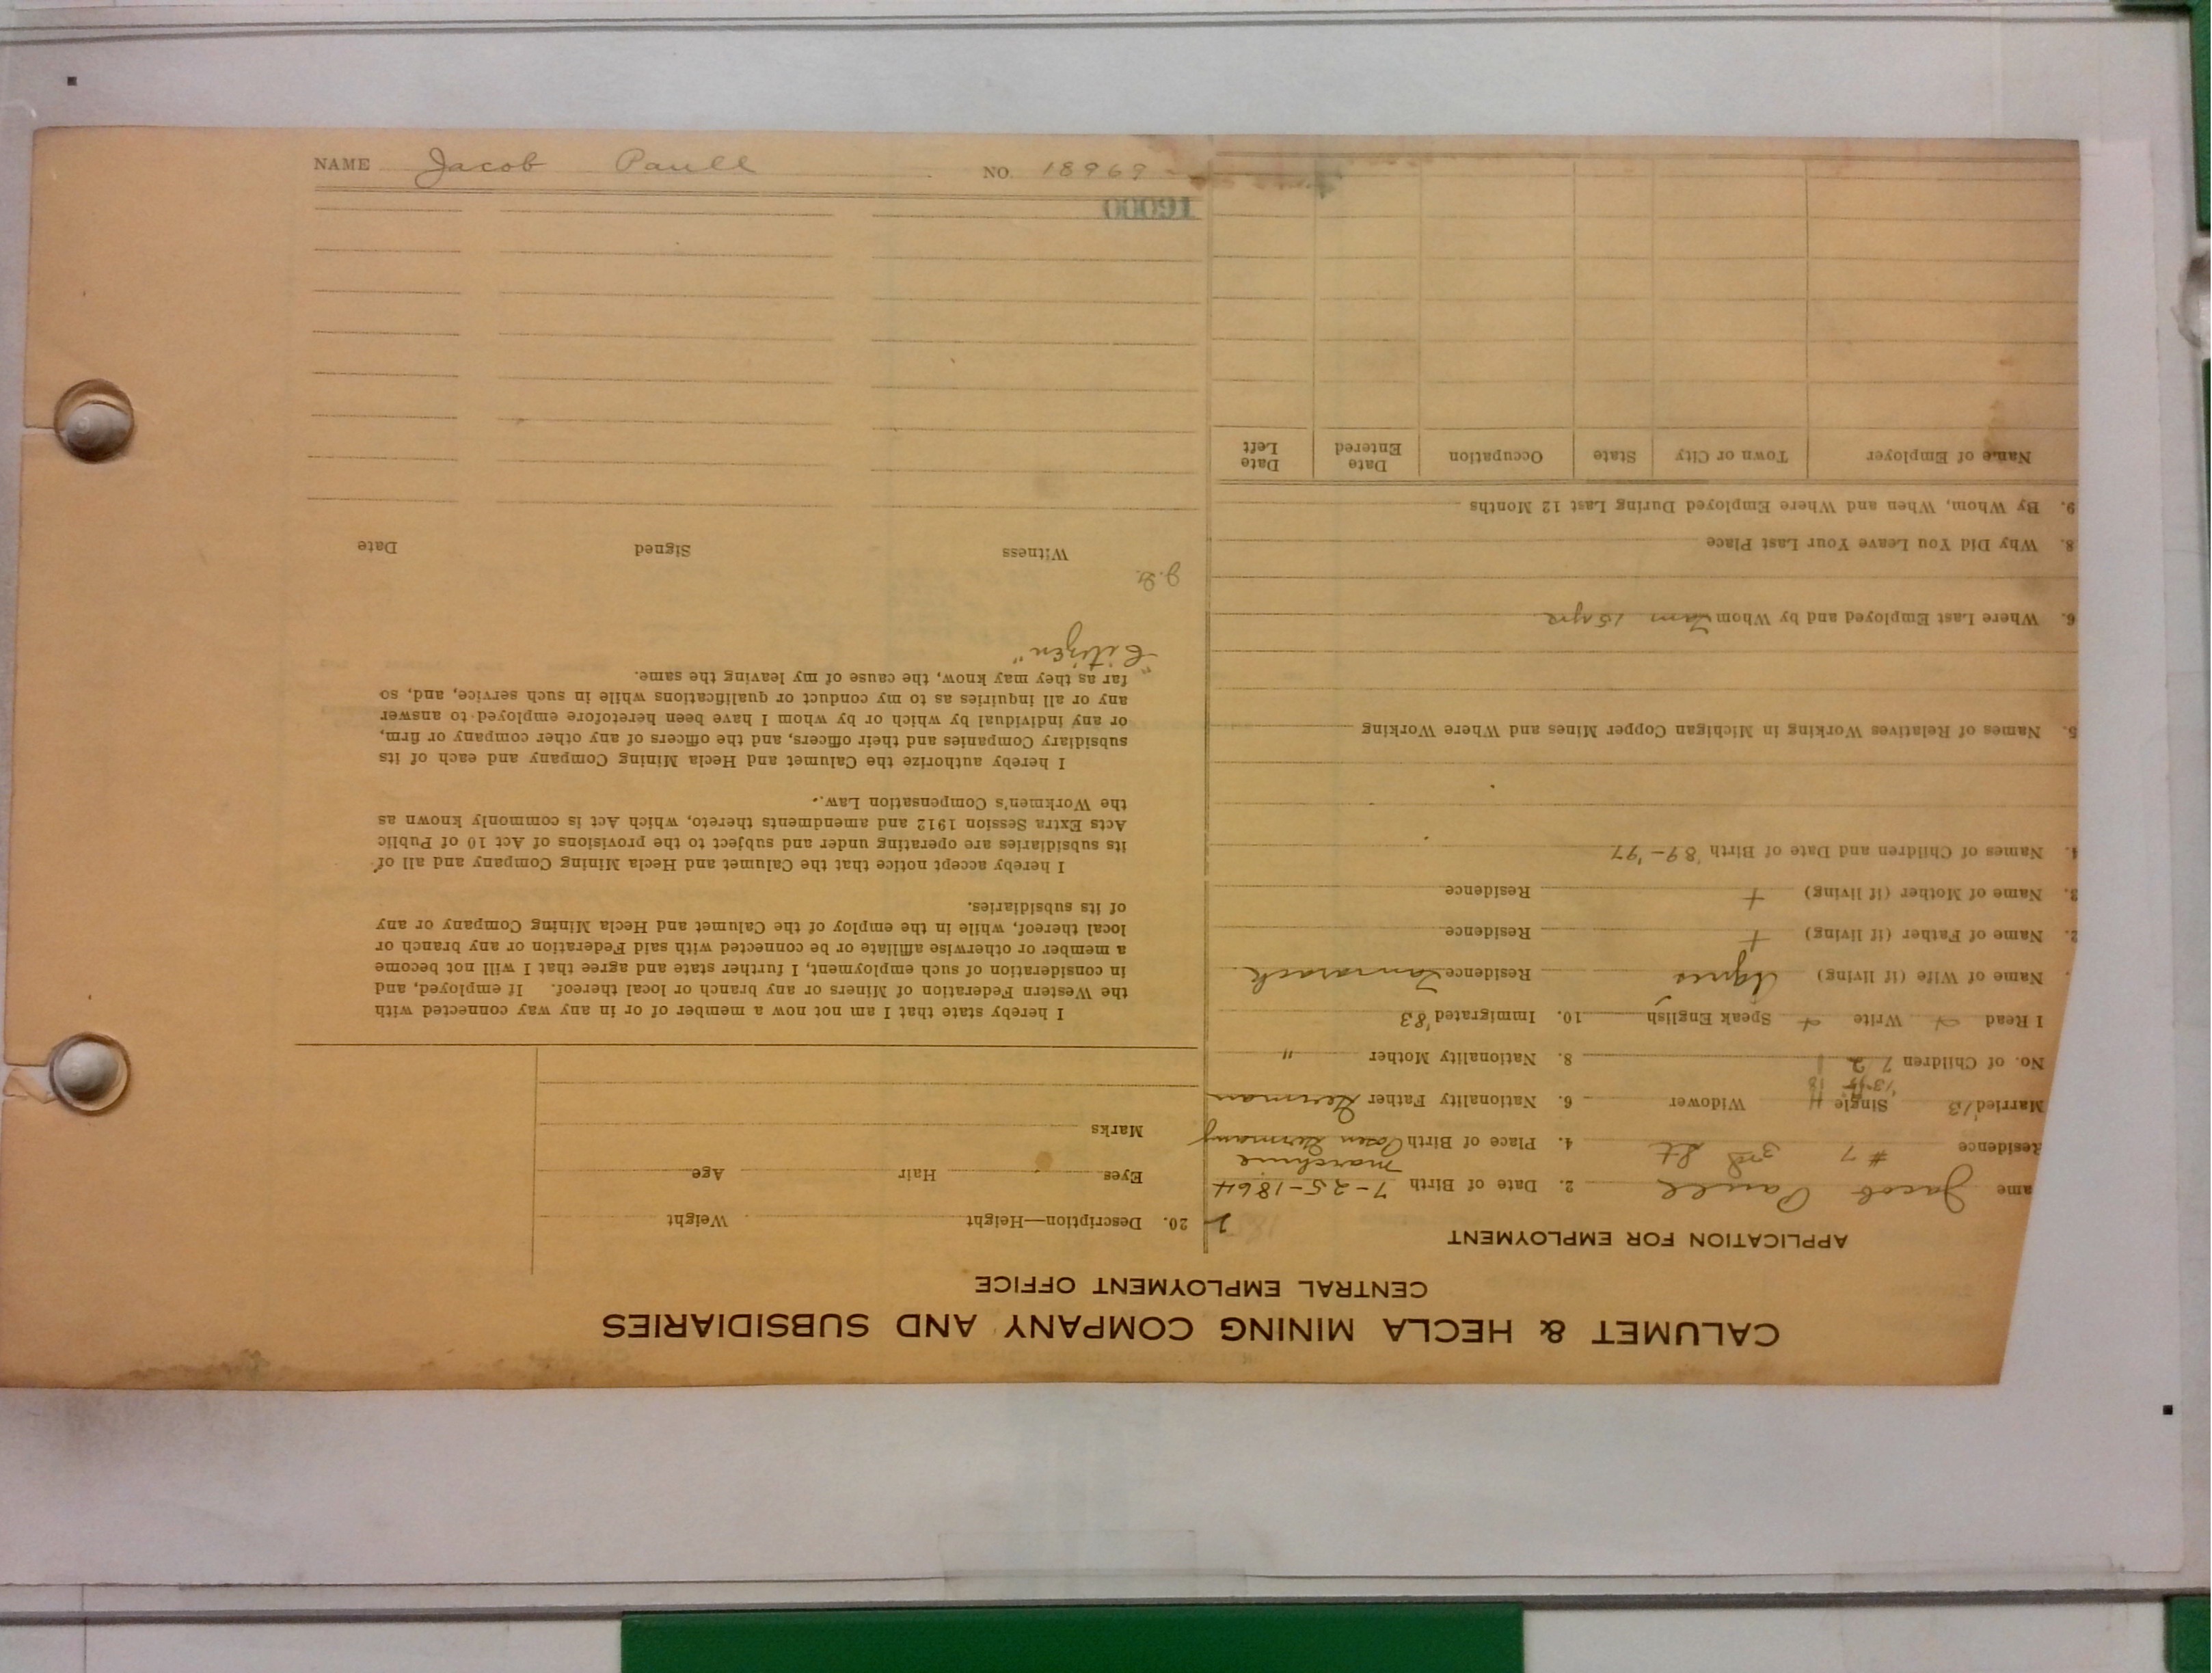 NAME Jacob Paull NO. 18969
16000
CALUMET & HECLA MINING COMPANY AND SUBSIDIARIES
CENTRAL EMPLOYMENT OFFICE
APPLICATION FOR EMPLOYMENT
ame Jacob Paull 2. Date of Birth 7-25-1864
Residence #7 3rd St 4. Place of Birth Posen Germany
Married/3 Single 4 Widower 6. Nationality Father German
No. of Children 7 2 8. Nationality Mother "
I Read + Write + Speak English 10. Immigrated '83
Name of Wife (if living) Agnes Residence Tamarack
2. Name of Father (if living) + Residence
3. Name of Mother (if living) + Residence
4. Names of Children and Date of Birth '89-'97
5. Names of Relatives Working in Michigan Copper Mines and Where Working
6. Where Last Employed and by Whom Tam 15 yrs
8. Why Did You Leave Your Last Place
9. By Whom, When and Where Employed During Last 12 Months
Name of Employer Town or City State Occupation Date Entered Date Left
20. Description—Height Weight
Eyes Hair Age
Marks
I hereby state that I am not now a member of or in any way connected with
the Western Federation of Miners or any branch or local thereof. If employed, and
in consideration of such employment, I further state and agree that I will not become
a member or otherwise affiliate or be connected with said Federation or any branch or
local thereof, while in the employ of the Calumet and Hecla Mining Company or any
of its subsidiaries.
I hereby accept notice that the Calumet and Hecla Mining Company and all of
its subsidiaries are operating under and subject to the provisions of Act 10 of Public
Acts Extra Session 1912 and amendments thereto, which Act is commonly known as
the Workmen's Compensation Law.
I hereby authorize the Calumet and Hecla Mining Company and each of its
subsidiary Companies and their officers, and the officers of any other company or firm,
or any individual by which or by whom I have been heretofore employed to answer
any or all inquiries as to my conduct or qualifications while in such service, and, so
far as they may know, the cause of my leaving the same.
"Citizen"
Witness Signed Date